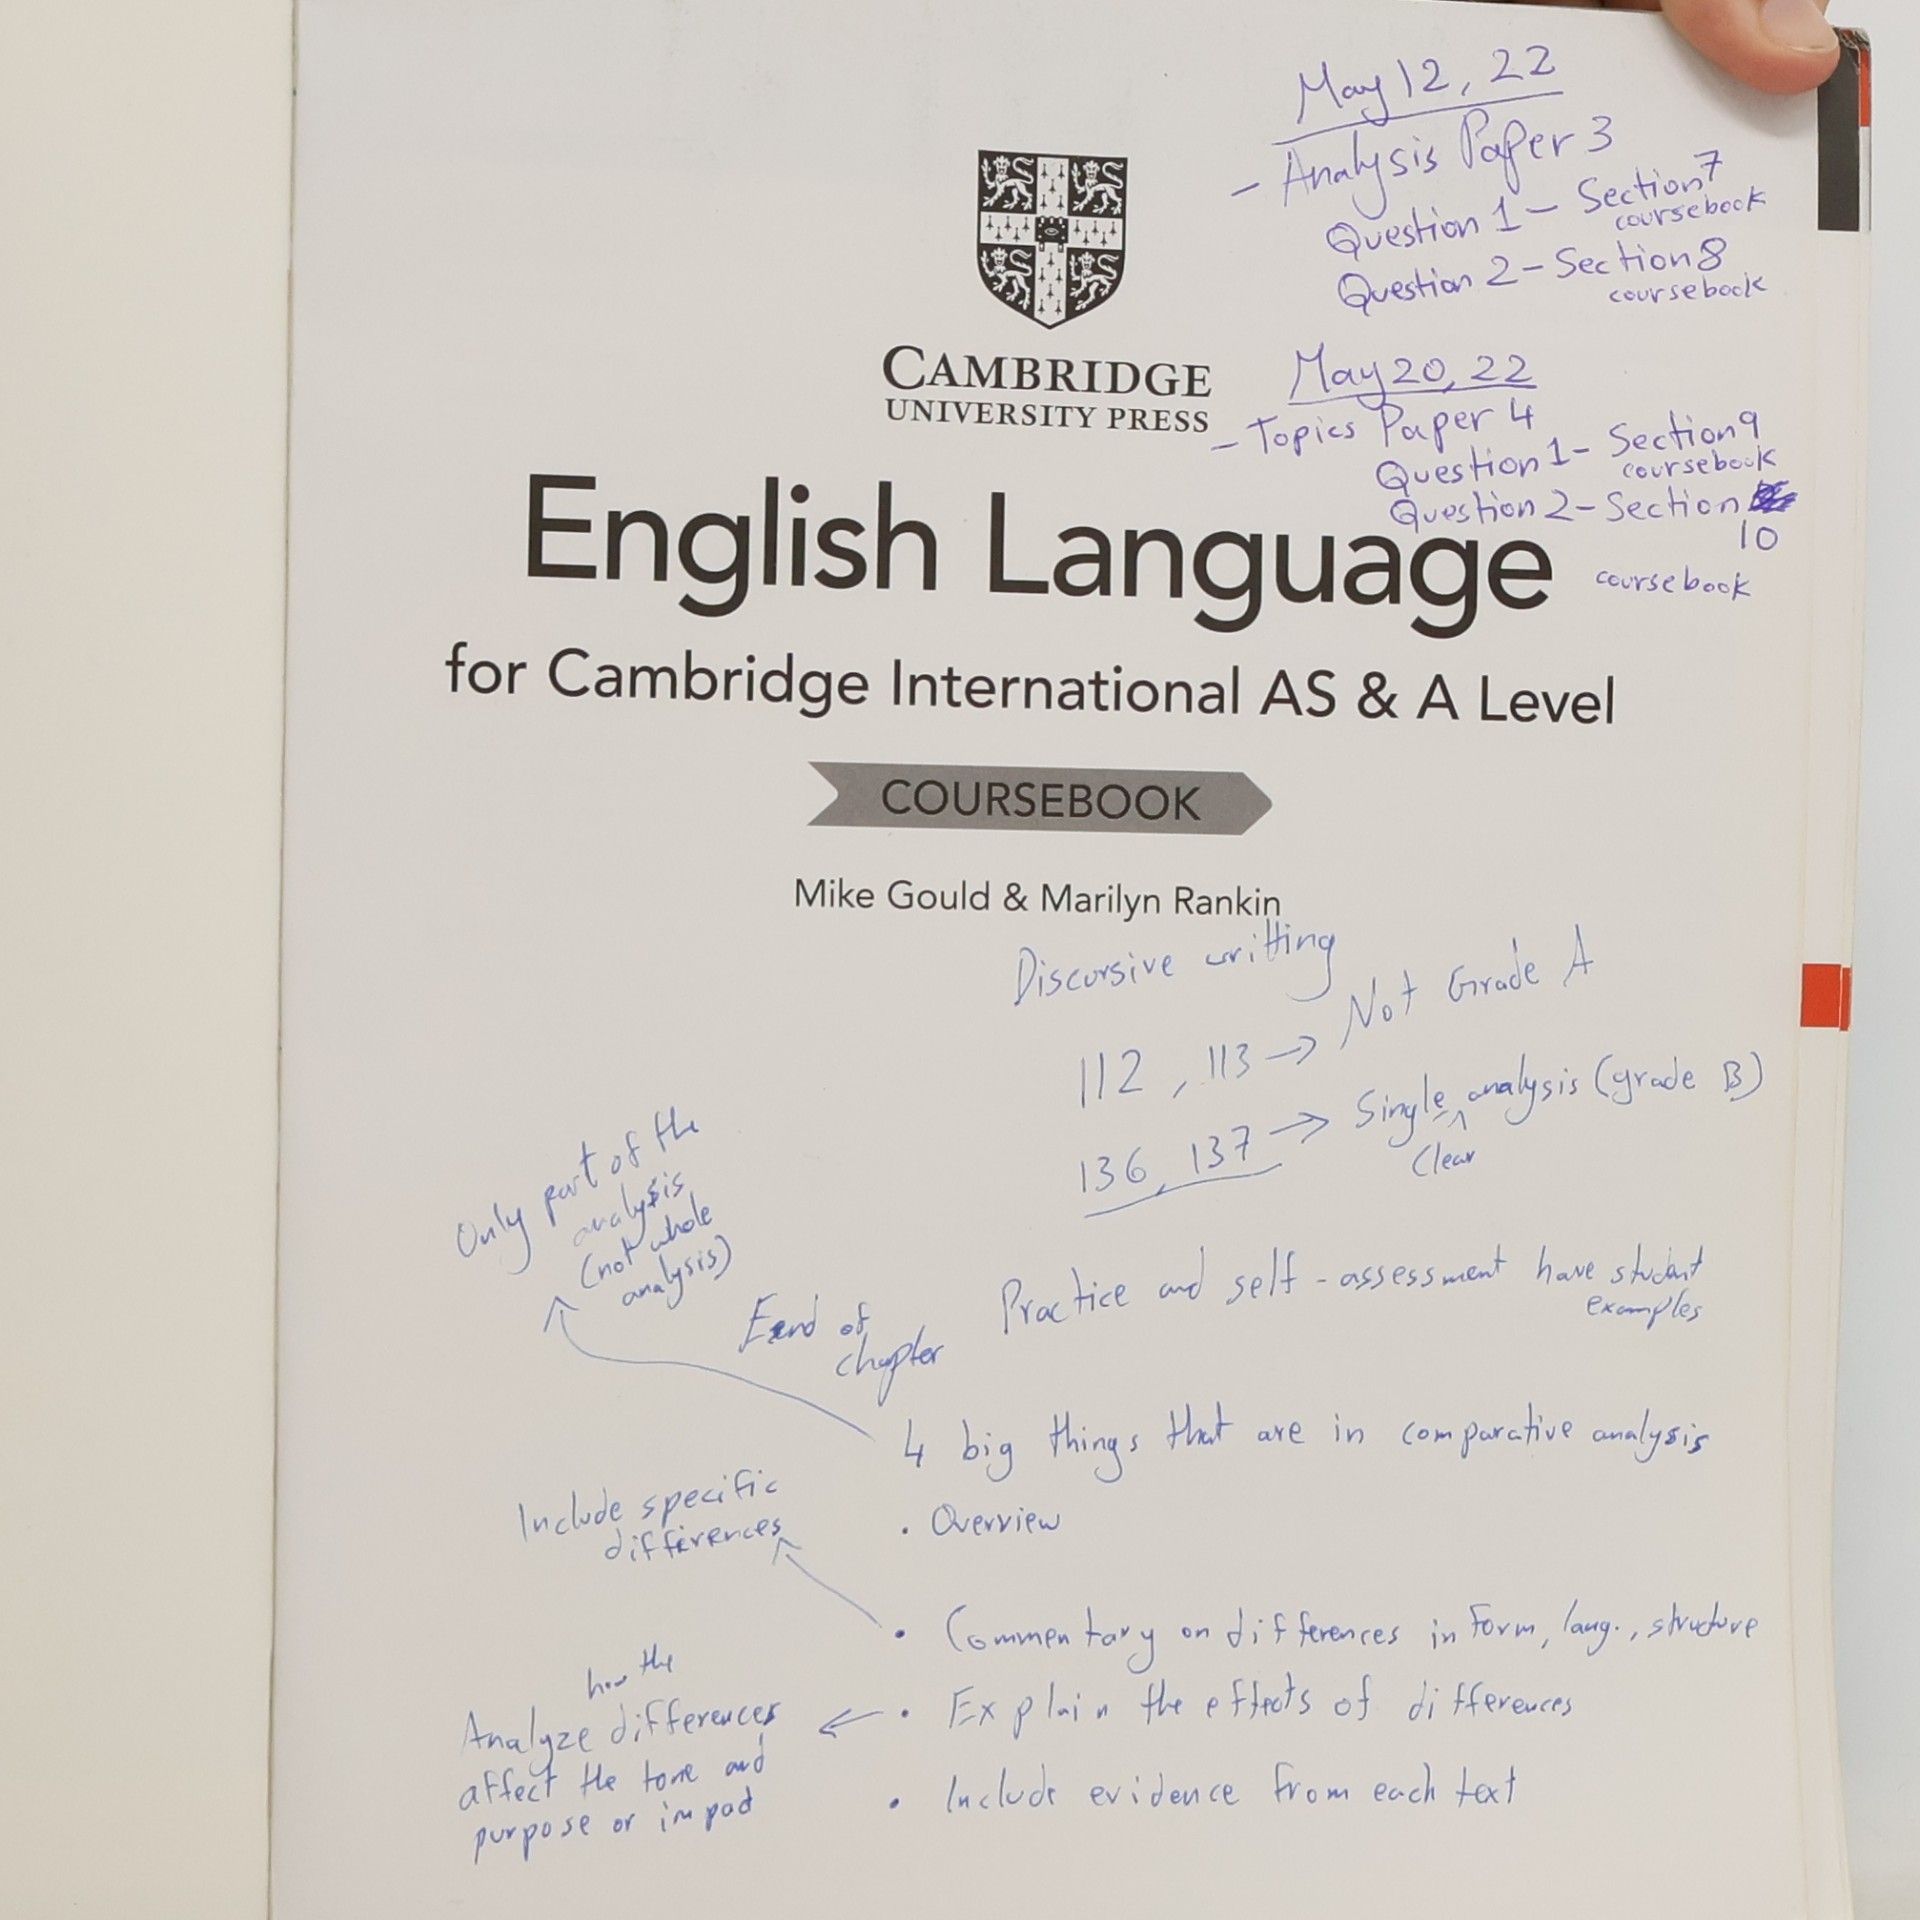 May 12, 22
- Analysis Paper 3
Question 1 - Section 7
coursebook
Question 2 - Section 8
coursebook
CAMBRIDGE
UNIVERSITY PRESS
May 20, 22
- Topics Paper 4
Question 1 - Section 9
coursebook
Question 2 - Section
10
coursebook
English Language
for Cambridge International AS & A Level
COURSEBOOK
Mike Gould & Marilyn Rankin
Discursive writting
112, 113 → Not Grade A
136, 137 → Single analysis (grade B)
^
Clear
Only part of the
analysis
(not whole
analysis)
End of
chapter
Practice and self-assessment have student
examples
4 big things that are in comparative analysis
• Overview
Include specific
differences
• Commentary on differences in Form, lang., structure
how the
Analyze differences
affect the tone and
purpose or impact
• Explain the effects of differences
• Include evidence from each text